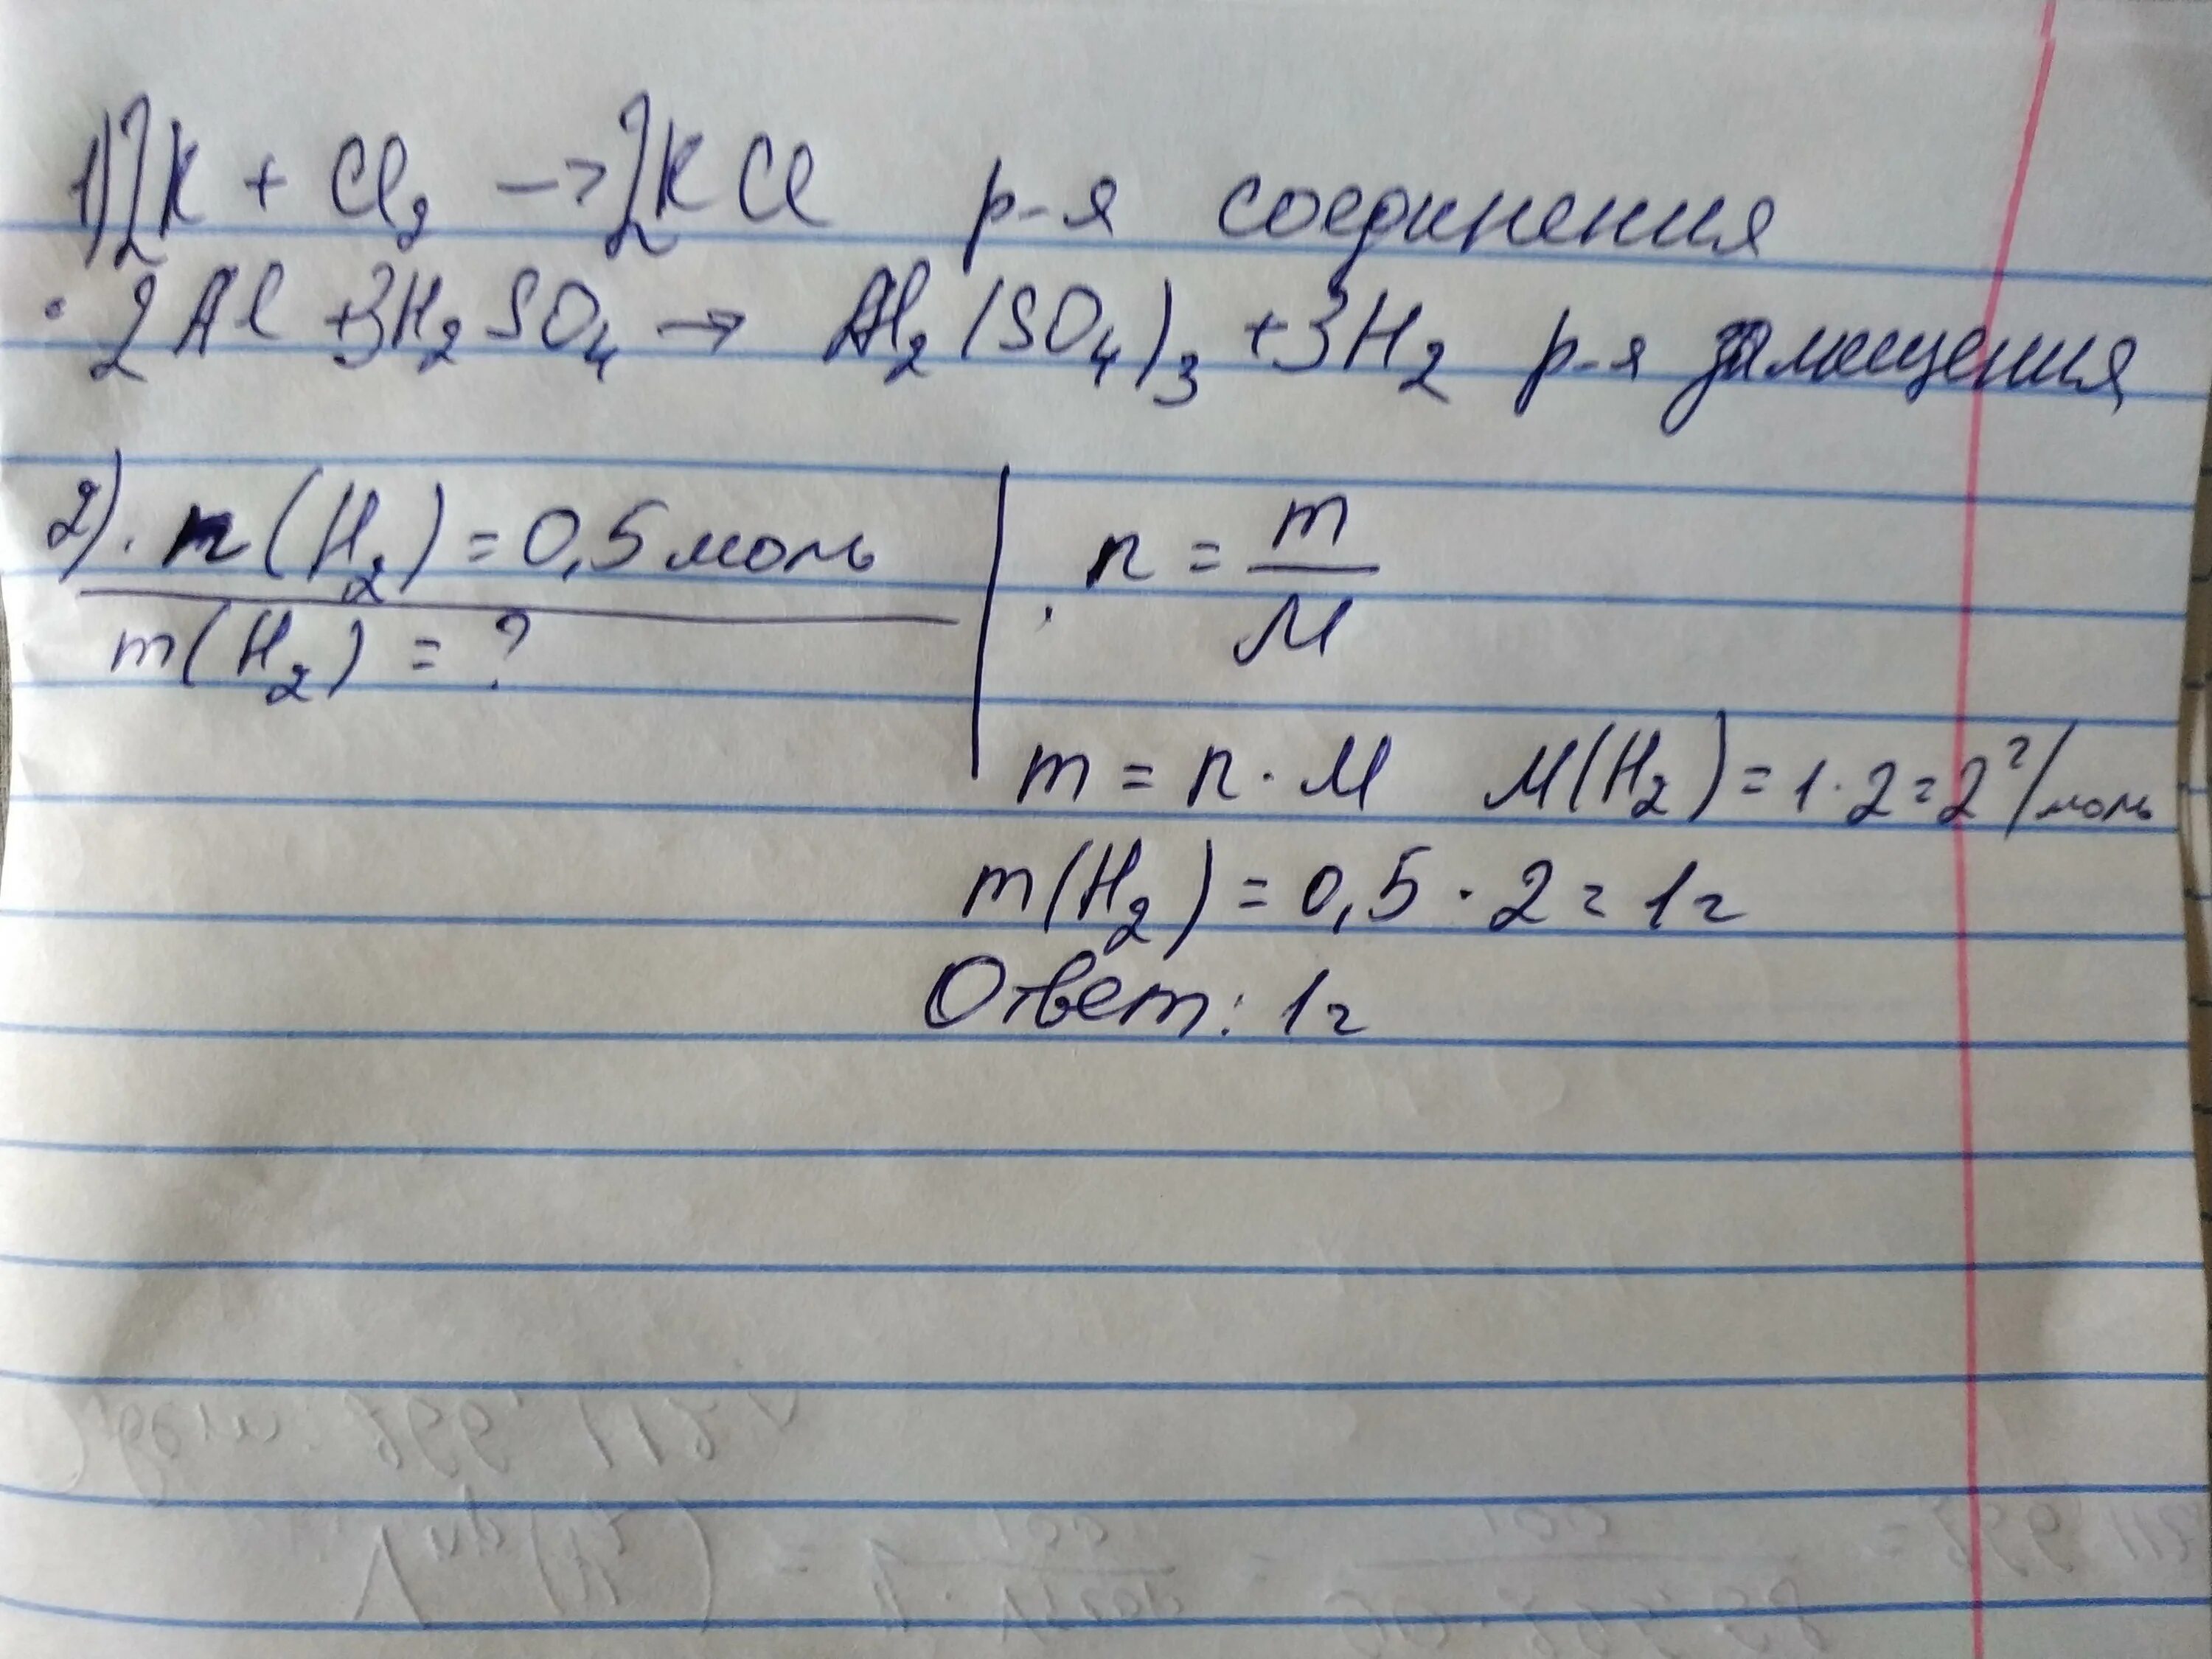 1) 2K + Cl₂ → 2KCl р-я соединения
· 2Al + 3H₂SO₄ → Al₂(SO₄)₃ + 3H₂ р-я замещения
2). n(H₂) = 0,5 моль
m(H₂) = ?
n = m/M
m = n · M M(H₂) = 1 · 2 = 2 г/моль
m(H₂) = 0,5 · 2 = 1г
Ответ: 1г